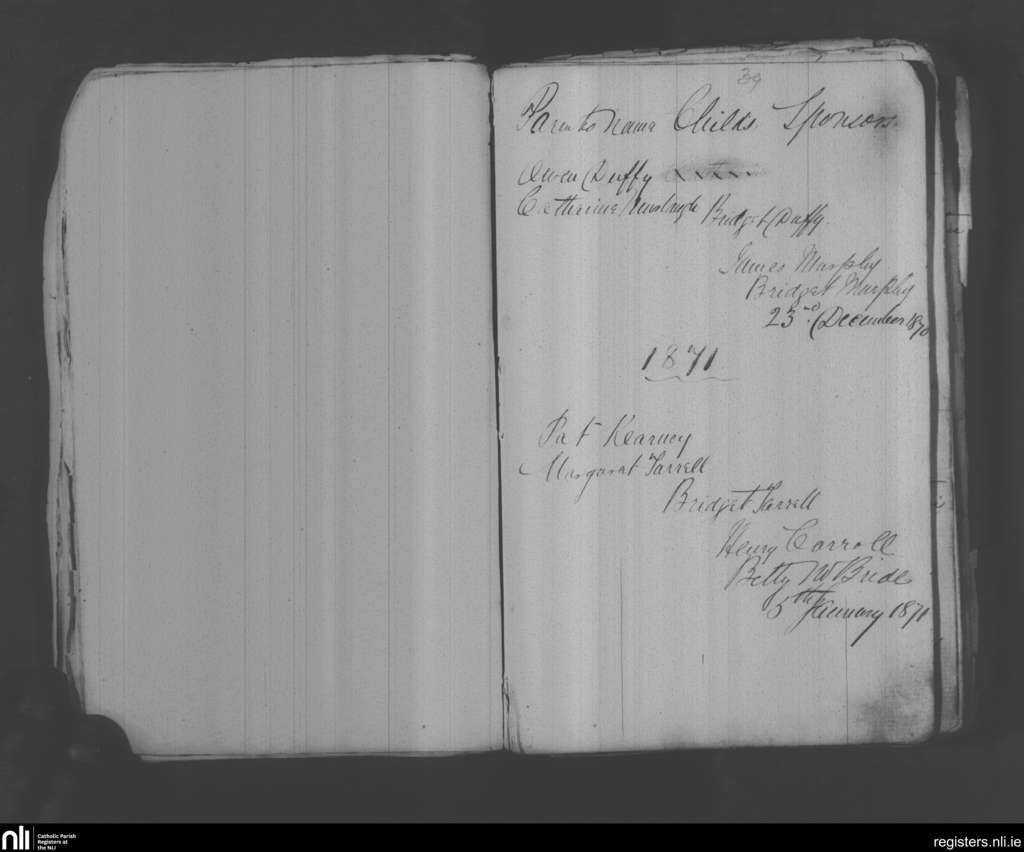 39
Parents name Childs Sponsors
Owen Duffy
Catherine Bridget Duffy
James Murphy
Bridget Murphy
23rd December 1870
1871
Pat Kearney
Margaret Farrell
Bridget Farrell
Henry Carroll
Betty McBride
5th January 1871
nli Catholic Parish
Registers at
the NLI
registers.nli.ie